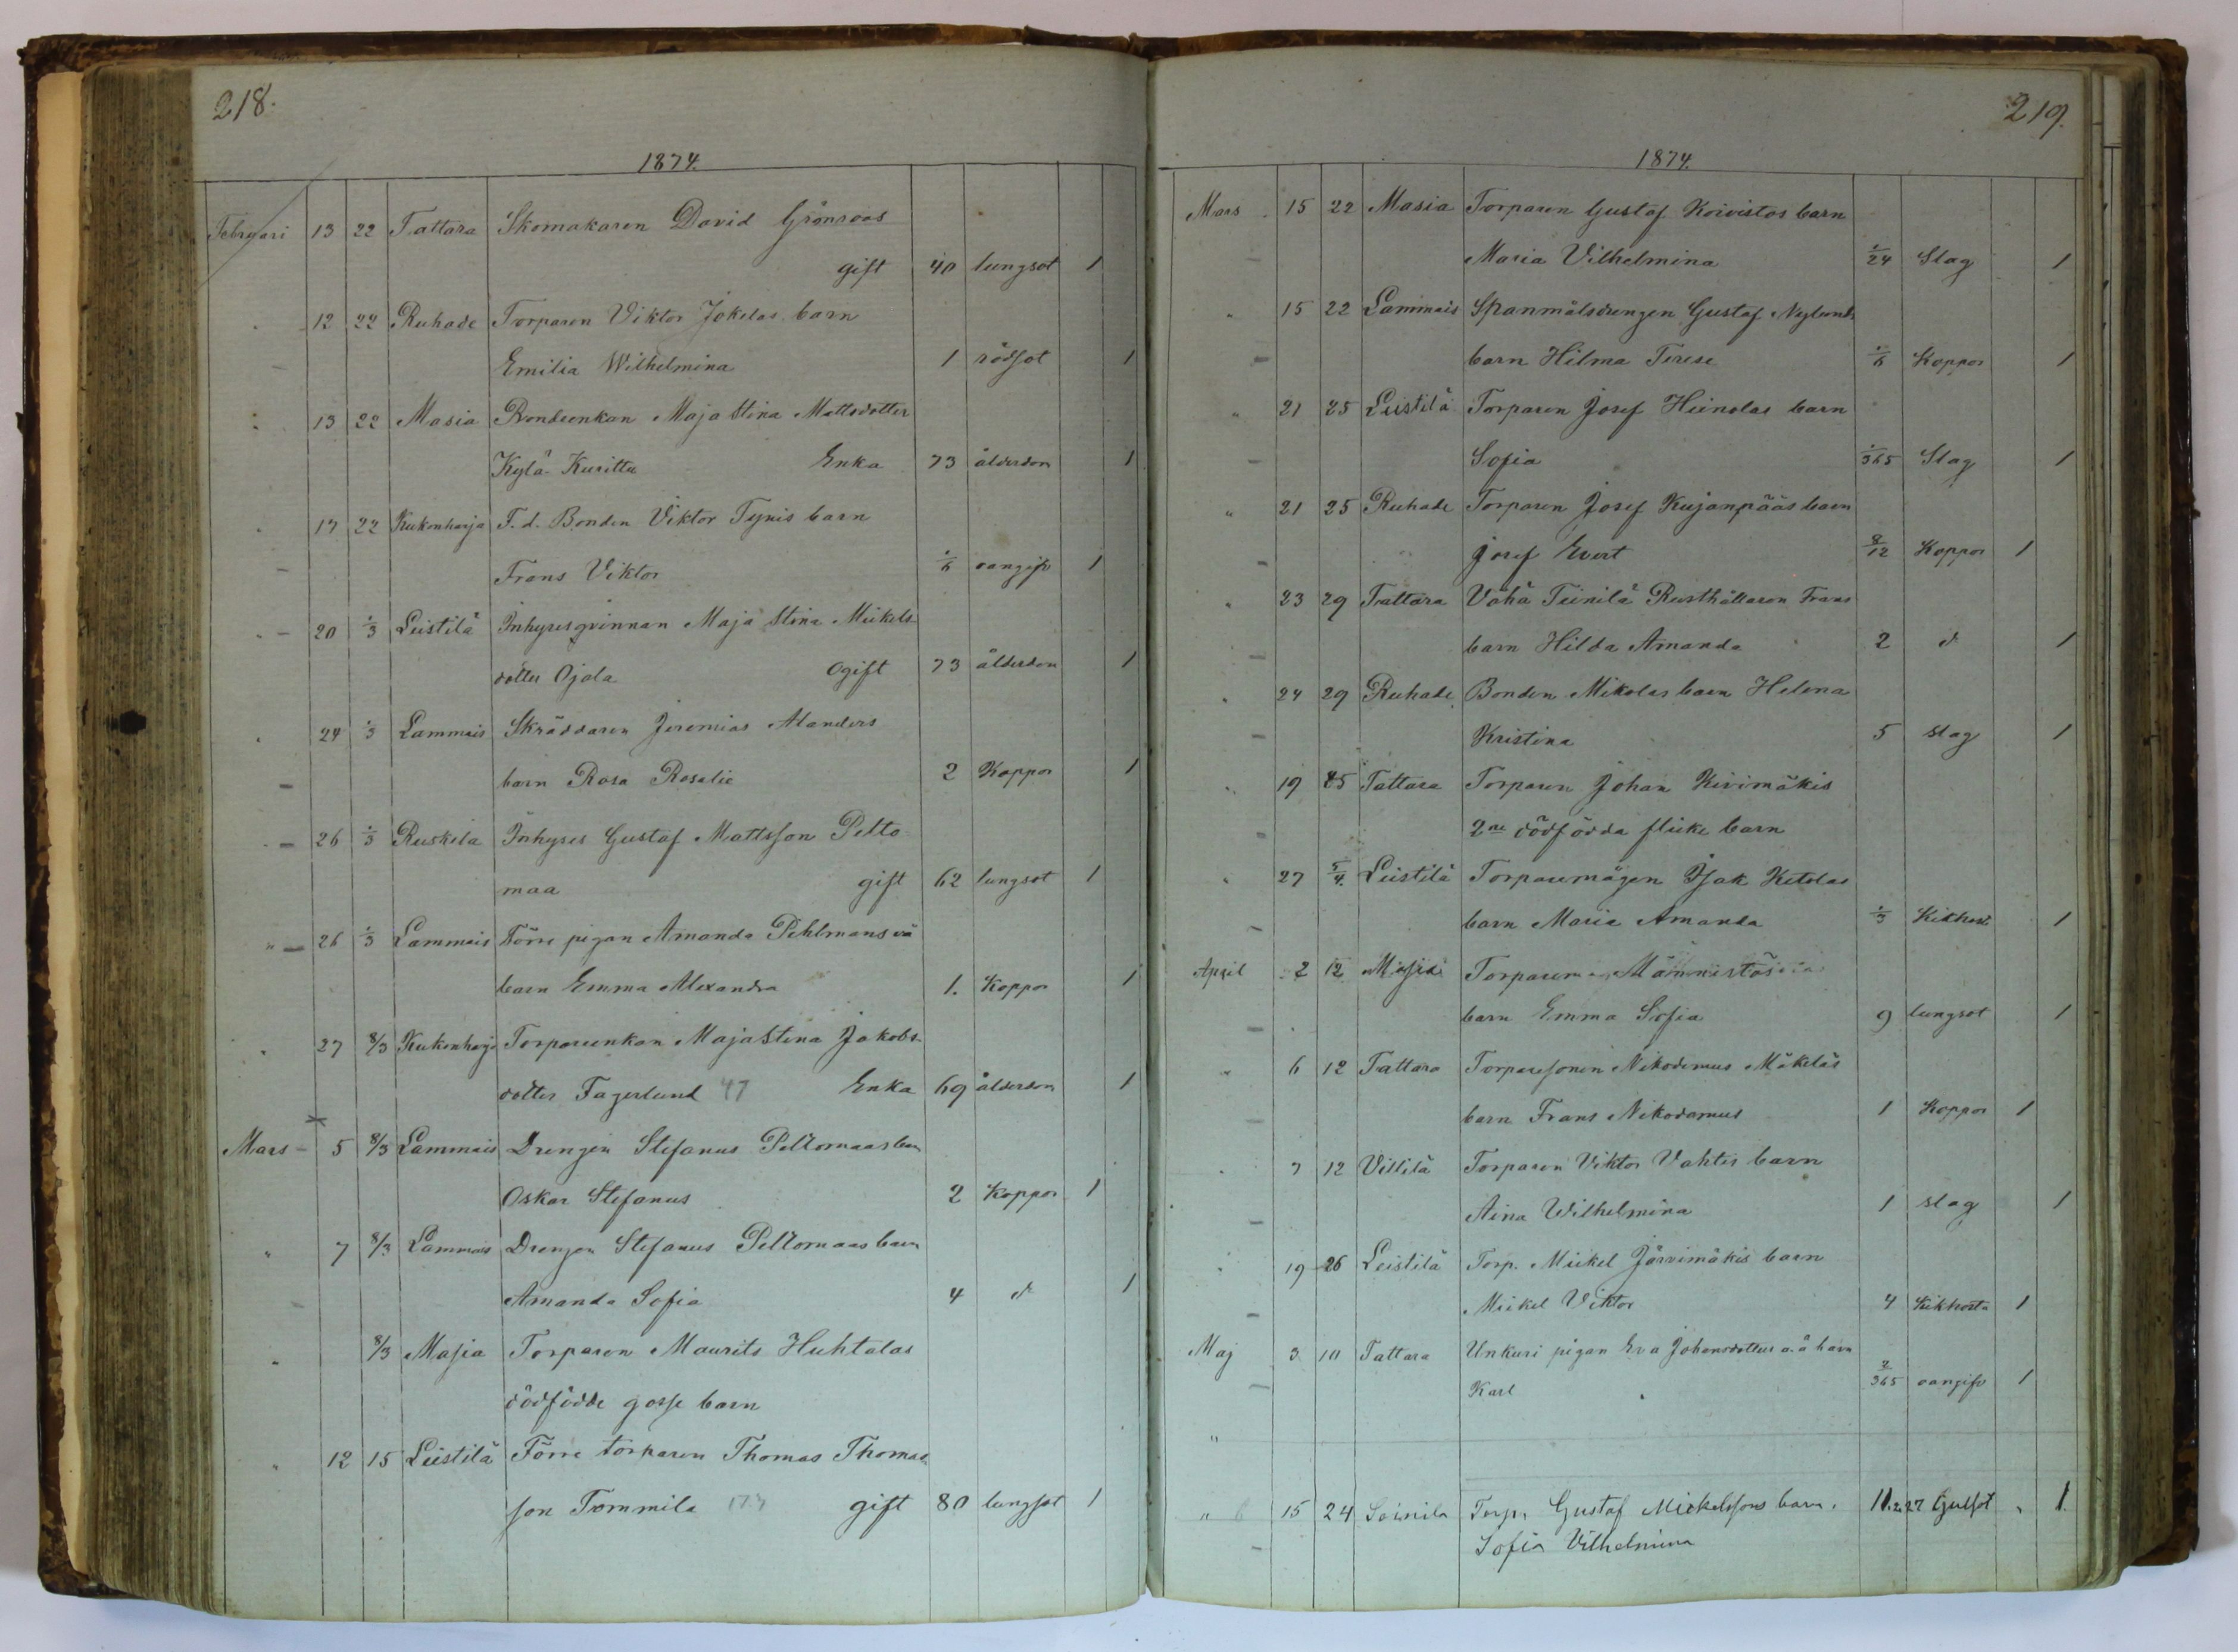 218.
1874.
Februari 13 22 Tattara Skomakaren David Grönroos
gift 40 lungsot 1
12 22 Ruhade Torparen Viktor Jokelas barn
Emilia Wilhelmina 1 rödsot 1
13 22 Masia Bondeenkan Maja Stina Mattsdotter
Kylä-Kurittu Enka 73 ålderdom 1
17 22 Kukonharja F. d. Bonden Viktor Tynis barn
Frans Viktor 1/6 oangifv 1
20 1/3 Leistilä Inhysesqvinnan Maja Stina Mickels-
dotter Ojala Ogift 73 ålderdom 1
24 1/3 Lammais Skräddaren Jeremias Alanders
barn Rosa Rosalie 2 Koppor 1
26 1/3 Ruskila Inhyses Gustaf Mattsson Pelto-
maa gift 62 lungsot 1
" 26 1/3 Lammais Förre pigan Amanda Pihlmans
barn Emma Alexandra 1. Koppor 1
27 8/3 Kukonharja Torpareenkan Maja Stina Jakobs-
dotter Fagerlund 47 Enka 69 ålderdom 1
Mars 5 8/3 Lammais Drengen Stefanus Peltomaas barn
Oskar Stefanus 2 Koppor 1
" 7 8/3 Lammais Drengen Stefanus Peltomaas barn
Amanda Sofia 4 d 1
" 8/3 Masia Torparen Maurits Huhtalas
dödfödde gosse barn
" 12 15 Leistilä Förre torparen Thomas Thomas
son Tommila 173 gift 80 lungsot 1
219.
1874.
Mars 15 22 Masia Torparen Gustaf Koivistos barn
Maria Vilhelmina 1/24 Slag 1
" 15 22 Lammais Spanmålsdrengen Gustaf Nylunds
barn Hilma Terese 1/6 Koppor 1
" 21 25 Leistilä Torparen Josef Heinolas barn
Sofia 1/365 Slag 1
" 21 25 Ruhade Torparen Josef Kujanpääs barn
Josef Evert 8/12 Koppor 1
" 23 29 Tattara Vähä Teinilä Rusthållaren Frans
barn Hilda Amanda 2 d 1
" 24 29 Ruhade Bonden Mikolas barn Helena
Kristina 5 slag 1
" 19 25 Tattara Torparen Johan Kivimäkis
2ne dödfödda flicke barn
" 27 5/4. Leistilä Torparemågen Isak Ketolas
barn Maria Amanda 1/3 Kikhosta 1
April 2 12 Masia Männistös
barn Emma Sofia 9 lungsot 1
" 6 12 Tattara Torparesonen Nikodemus Mäkeläs
barn Frans Nikodamus 1 Koppor 1
7 12 Villilä Torparen Viktor Vahtis barn
Aina Wilhelmina 1 slag 1
19 26 Leistilä Torp. Mickel Järvimäkis barn
Mickel Viktor 4 Kikhosta 1
Maj 3 10 Tattara Unkuri pigan Eva Johansdotters o.ä barn
Karl 2/365 oangifv 1
"
" 15 24 Soinila Torp. Gustaf Mickelssons barn. 11.2.27 Gulsot " 1.
Sofia Vilhelmina